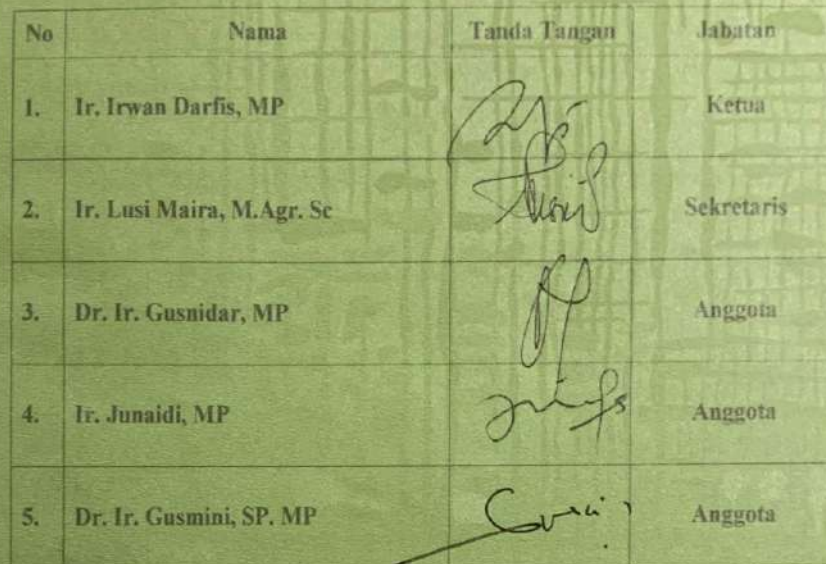 No Nama Tanda Tangan Jabatan
1. Ir. Irwan Darfis, MP Ketua
2. Ir. Lusi Maira, M.Agr. Sc Sekretaris
3. Dr. Ir. Gusnidar, MP Anggota
4. Ir. Junaidi, MP Anggota
5. Dr. Ir. Gusmini, SP. MP Anggota